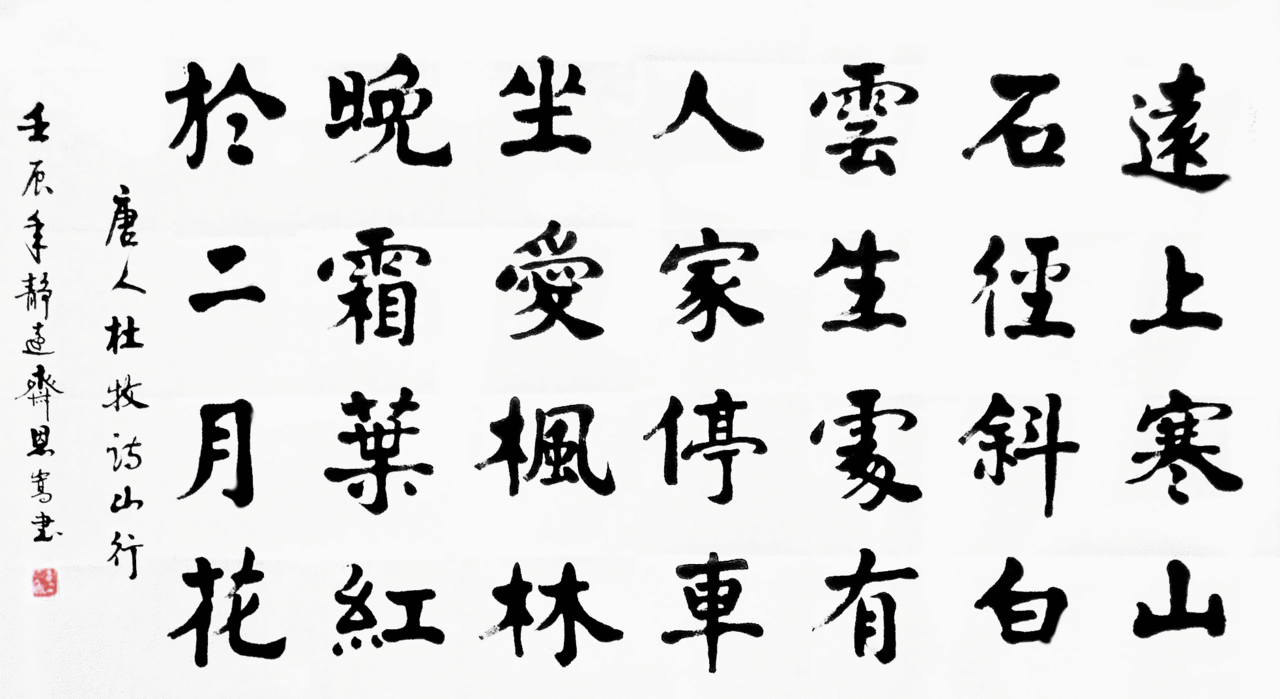 遠上寒山
石徑斜白
雲生處有
人家停車
坐愛楓林
晚霜葉紅
於二月花
唐人杜牧詩山行
壬辰年靜遠齋恩嵩书